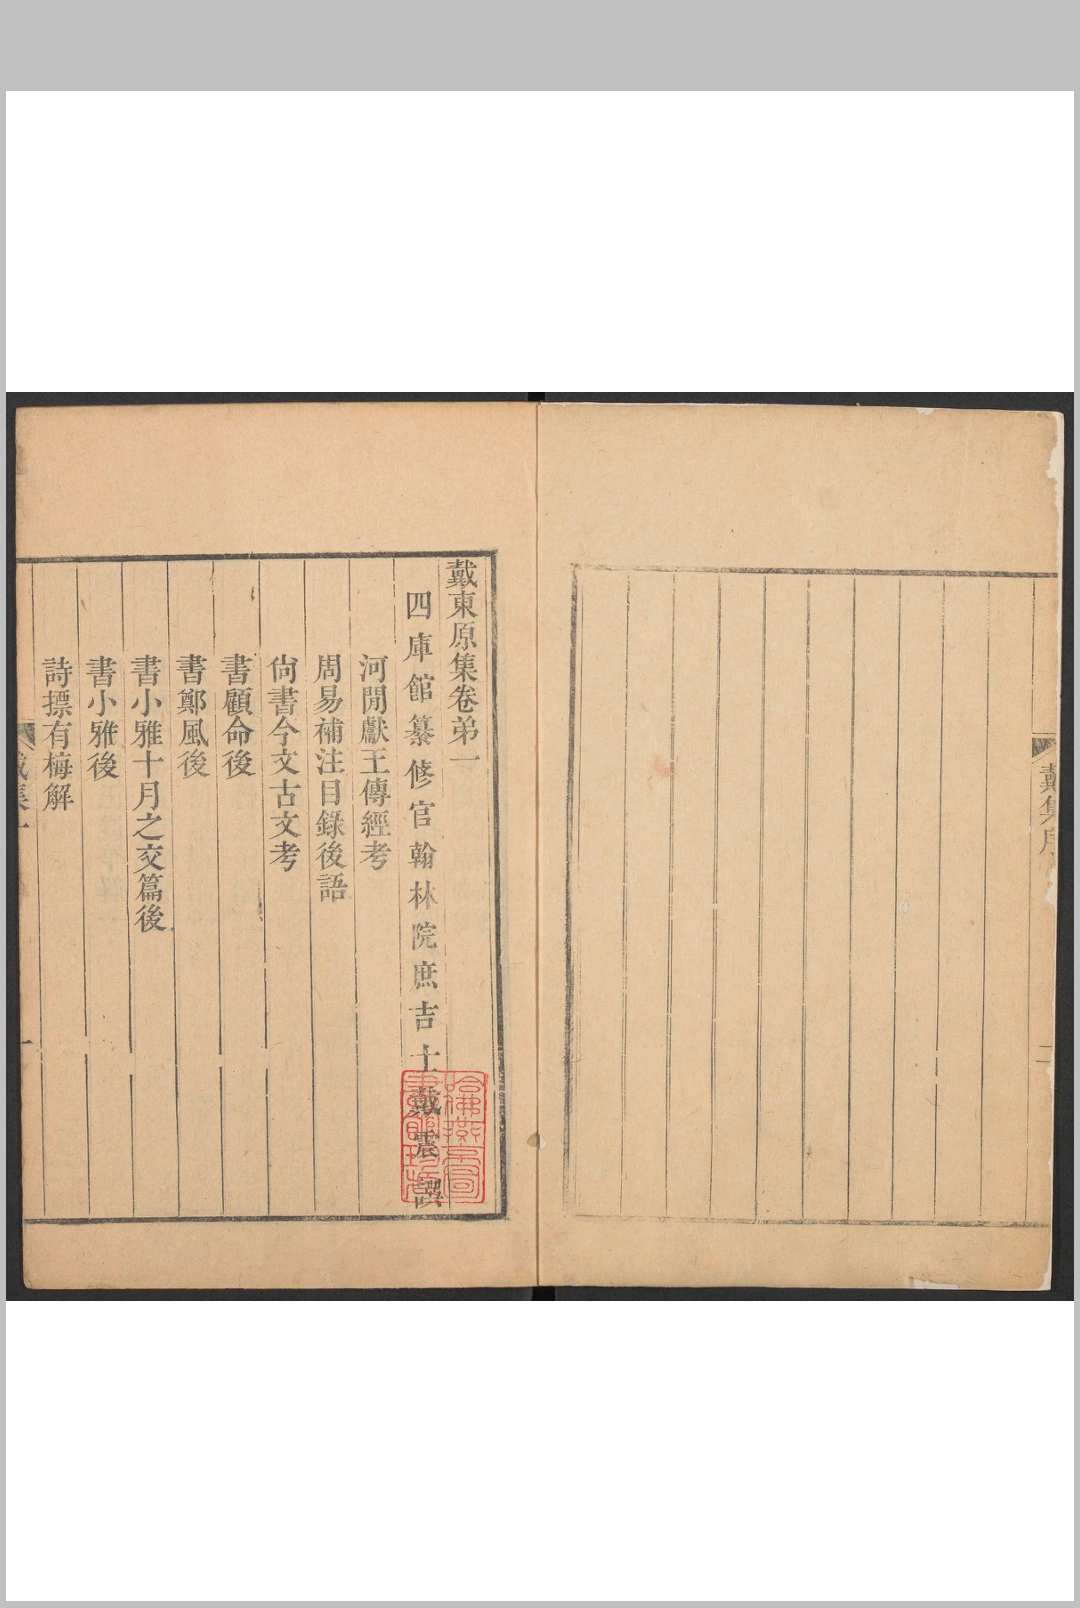 戴集序
二
戴東原集卷弟一
四庫館纂修官翰林院庶吉士戴震譔
河閒獻王傳經考
周易補注目錄後語
尙書今文古文考
書顧命後
書鄭風後
書小雅十月之交篇後
書小雅後
詩摽有梅解
戴集一
一
哈佛燕京圖
書館珍藏